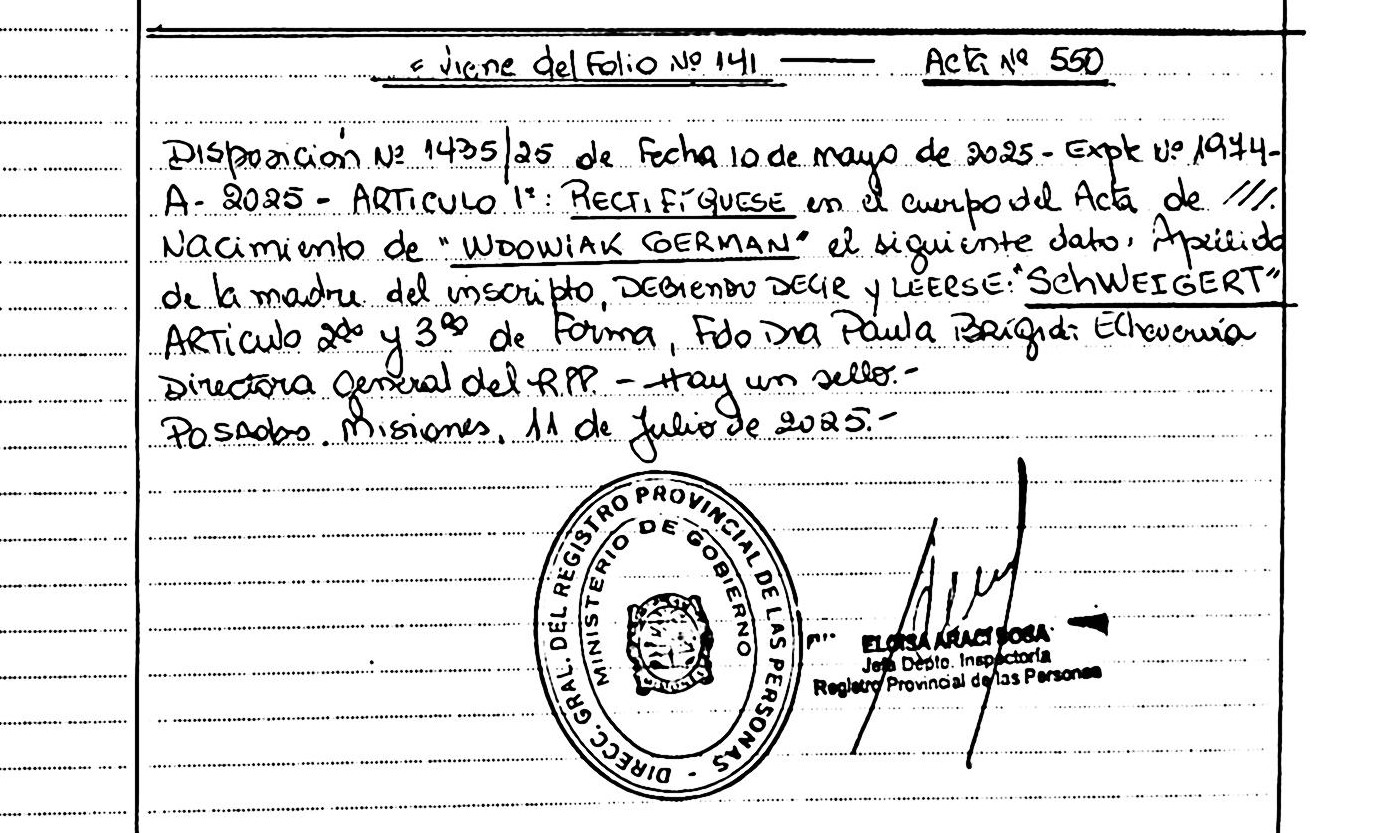 Viene del Folio Nº 141 — Acta Nº 550
Disposición Nº 1435/25 de Fecha 10 de mayo de 2025 - Expte Nº 1974-
A- 2025 - ARTICULO 1°: RECTIFÍQUESE en el cuerpo del Acta de ///.
Nacimiento de "WDOWIAK GERMAN" el siguiente dato: Apellido
de la madre del inscripto, DEBIENDO DECIR y LEERSE: "SCHWEIGERT"
ARTICULO 2do y 3ro de Forma, Fdo Dra Paula Brígida Echeverría
Directora General del R.P.P. - Hay un sello.-
Posadas. Misiones, 11 de Julio de 2025.-
DIRECC. GRAL. DEL REGISTRO PROVINCIAL DE LAS PERSONAS -
MINISTERIO DE GOBIERNO
ELOISA ARACI SOSA
Jefa Depto. Inspectoría
Registro Provincial de las Personas